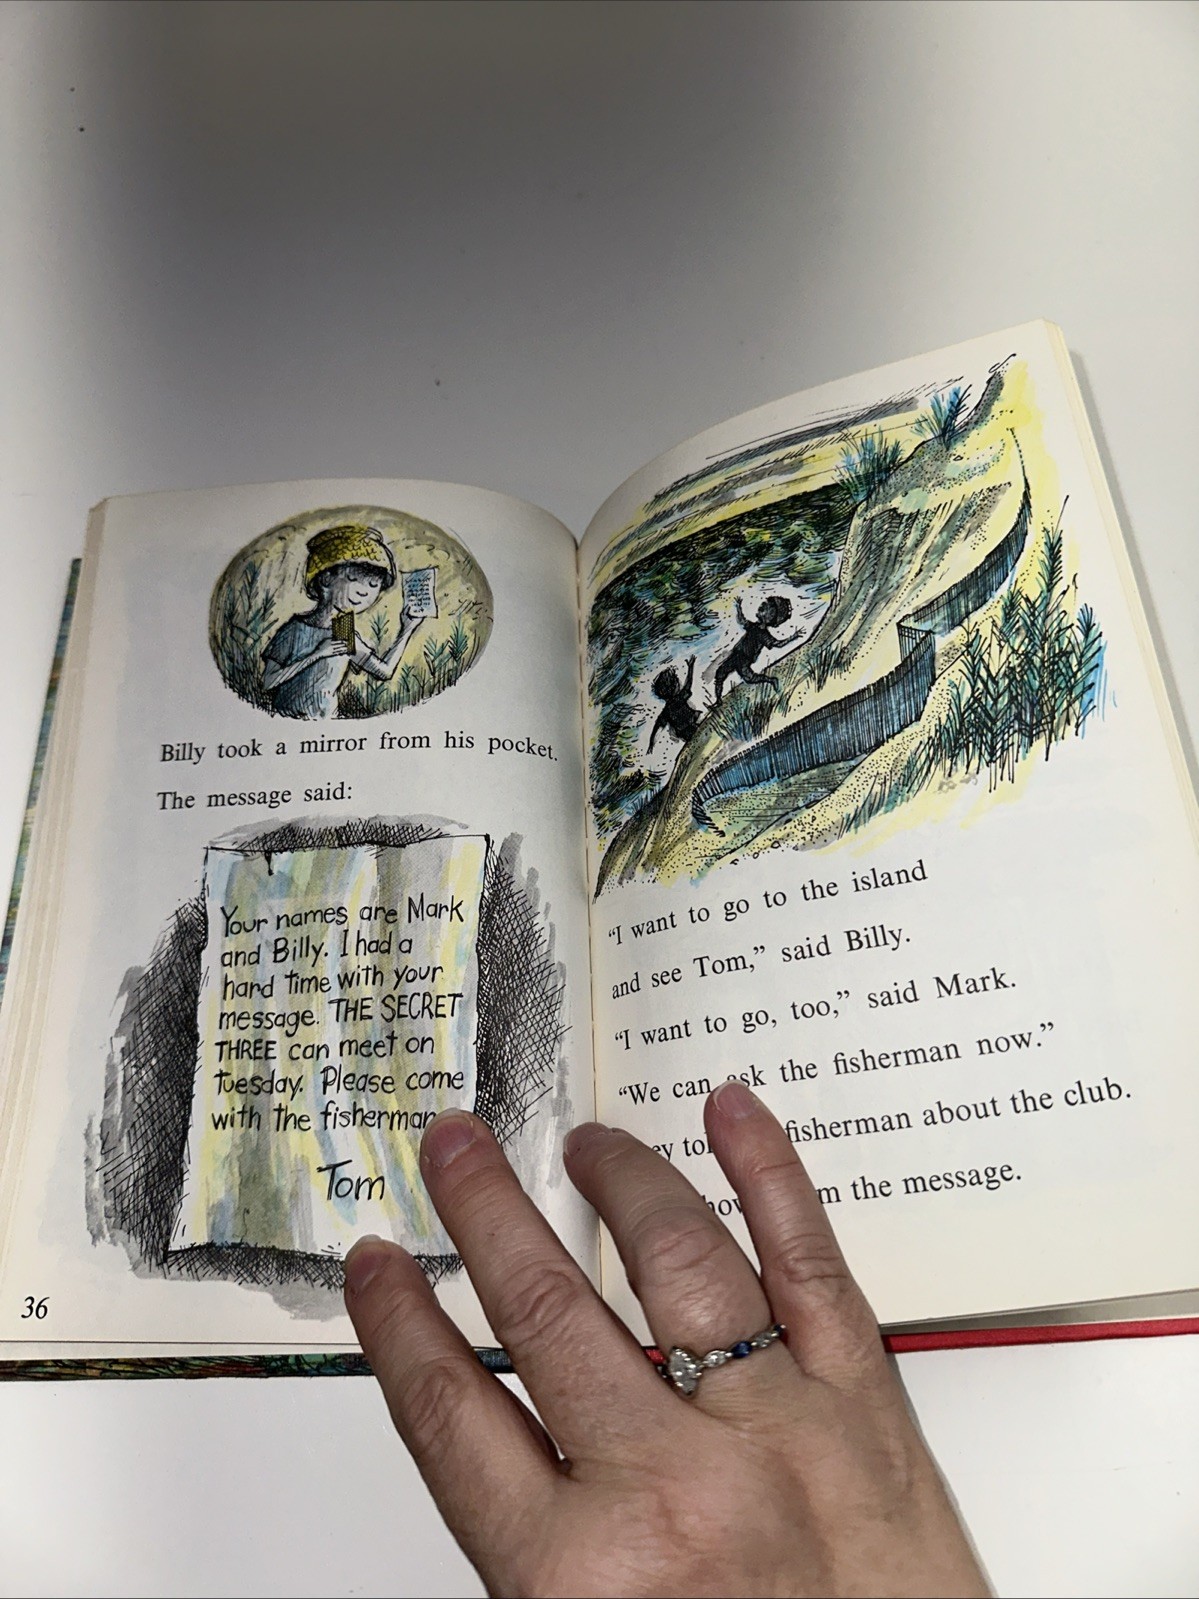 Billy took a mirror from his pocket.
The message said:
Your names are Mark
and Billy. I had a
hard time with your
message. THE SECRET
THREE can meet on
Tuesday. Please come
with the fisherman
Tom
36
“I want to go to the island
and see Tom,” said Billy.
“I want to go, too,” said Mark.
“We can ask the fisherman now.”
fisherman about the club.
the message.